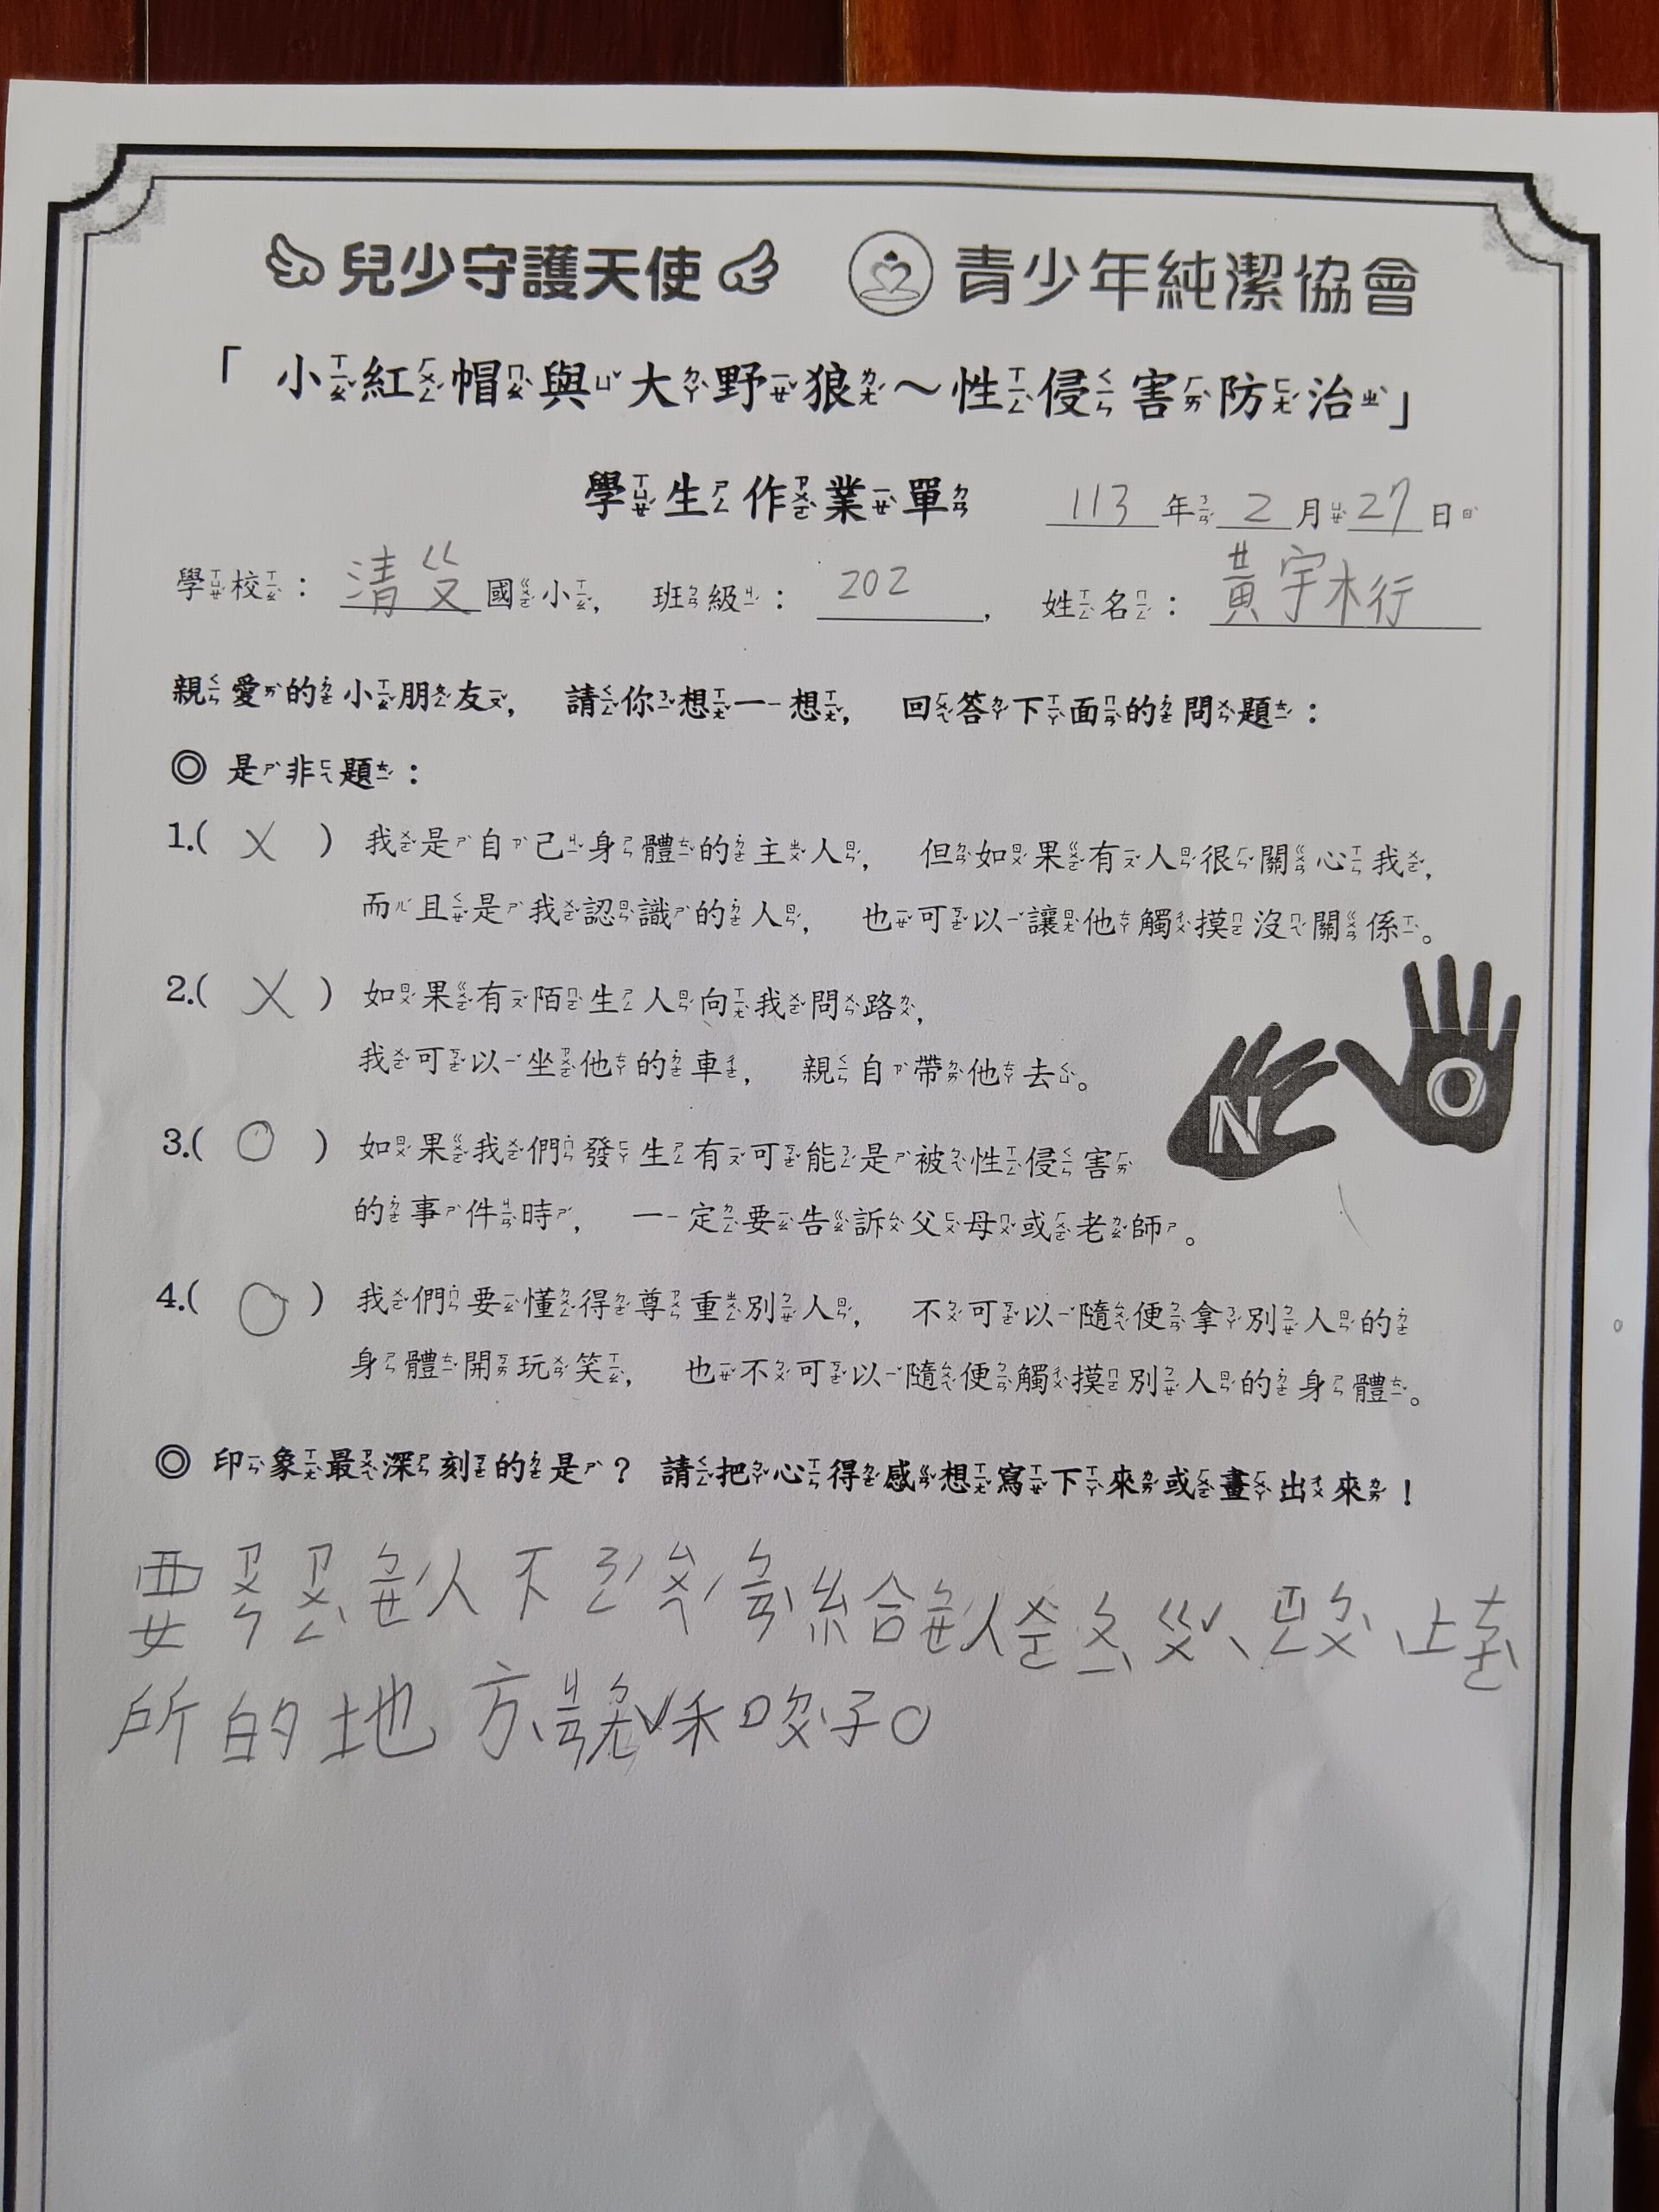 兒少守護天使 青少年純潔協會
「小紅帽與大野狼～性侵害防治」
學生作業單 113年2月27日
學校：清ㄍㄡ國小， 班級：202， 姓名：黃宇桁
親愛的小朋友， 請你想一想， 回答下面的問題：
◎ 是非題：
1.( X ) 我是自己身體的主人， 但如果有人很關心我，
而且是我認識的人， 也可以讓他觸摸沒關係。
2.( X ) 如果有陌生人向我問路，
我可以坐他的車， 親自帶他去。
3.( O ) 如果我們發生有可能是被性侵害
的事件時， 一定要告訴父母或老師。
4.( O ) 我們要懂得尊重別人， 不可以隨便拿別人的
身體開玩笑， 也不可以隨便觸摸別人的身體。
NO
◎ 印象最深刻的是？ 請把心得感想寫下來或畫出來！
要ㄗㄨㄣㄓㄨㄥˋㄅㄧㄝˊ人不ㄋㄥˊㄙㄨㄟˊㄅㄧㄢˋ給ㄅㄧㄝˊ人
所的地方